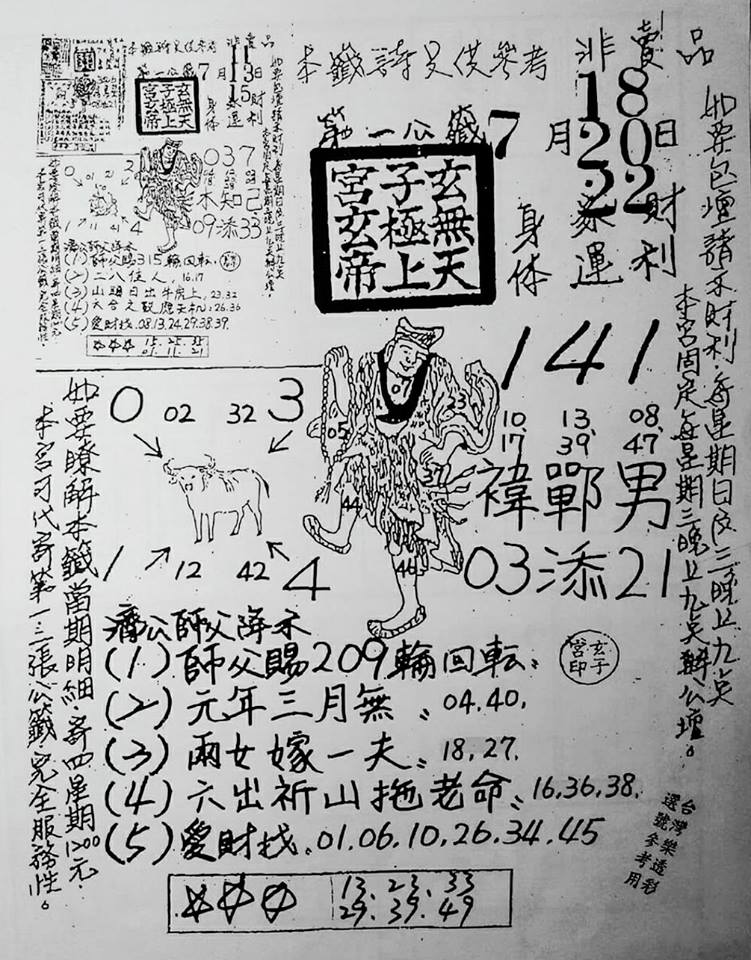 本籤詩只供參考 非賣品
第一公籤 7月 18 20 22 日
身体 家運 財利
玄無天
子極上
宮玄帝
1 4 1
10. 13. 08.
17 39 47
禕 鄲 男
03 添 21
0 02 32 3
1 12 42 4
05
23
37
44
46
濟公師父降示
(1) 師父賜209輪回転:
玄子宮印
(2) 元年三月無: 04.40.
(3) 兩女嫁一夫: 18.27.
(4) 六出祈山拖老命: 16.36.38.
(5) 愛財找.01.06.10.26.34.45
13.23.33
29.39.49
台灣樂透彩
選號參考用
如要包壇請示財利.每星期日及三晚上九点
本宮固定每星期三晚上九点辦公壇。
如要瞭解本籤當期明細.寄四星期1200元
本宮可代寄第一.二張公籤.完全服務性。
本籤詩只供參考 非賣品
第一公籤 7月 11 13 15 日
身体 家運 財利
玄無天
子極上
宮玄帝
037
木知己
09添33
濟公師父降示
(1) 師父賜315輪回転.
(2) 二八佳人. 16.17
(3) 山頭日出牛虎上. 23.32
(4) 六合之獸應天机: 26.36
(5) 愛財找.08.13.24.29.38.39.
15.25.35
01.11.21